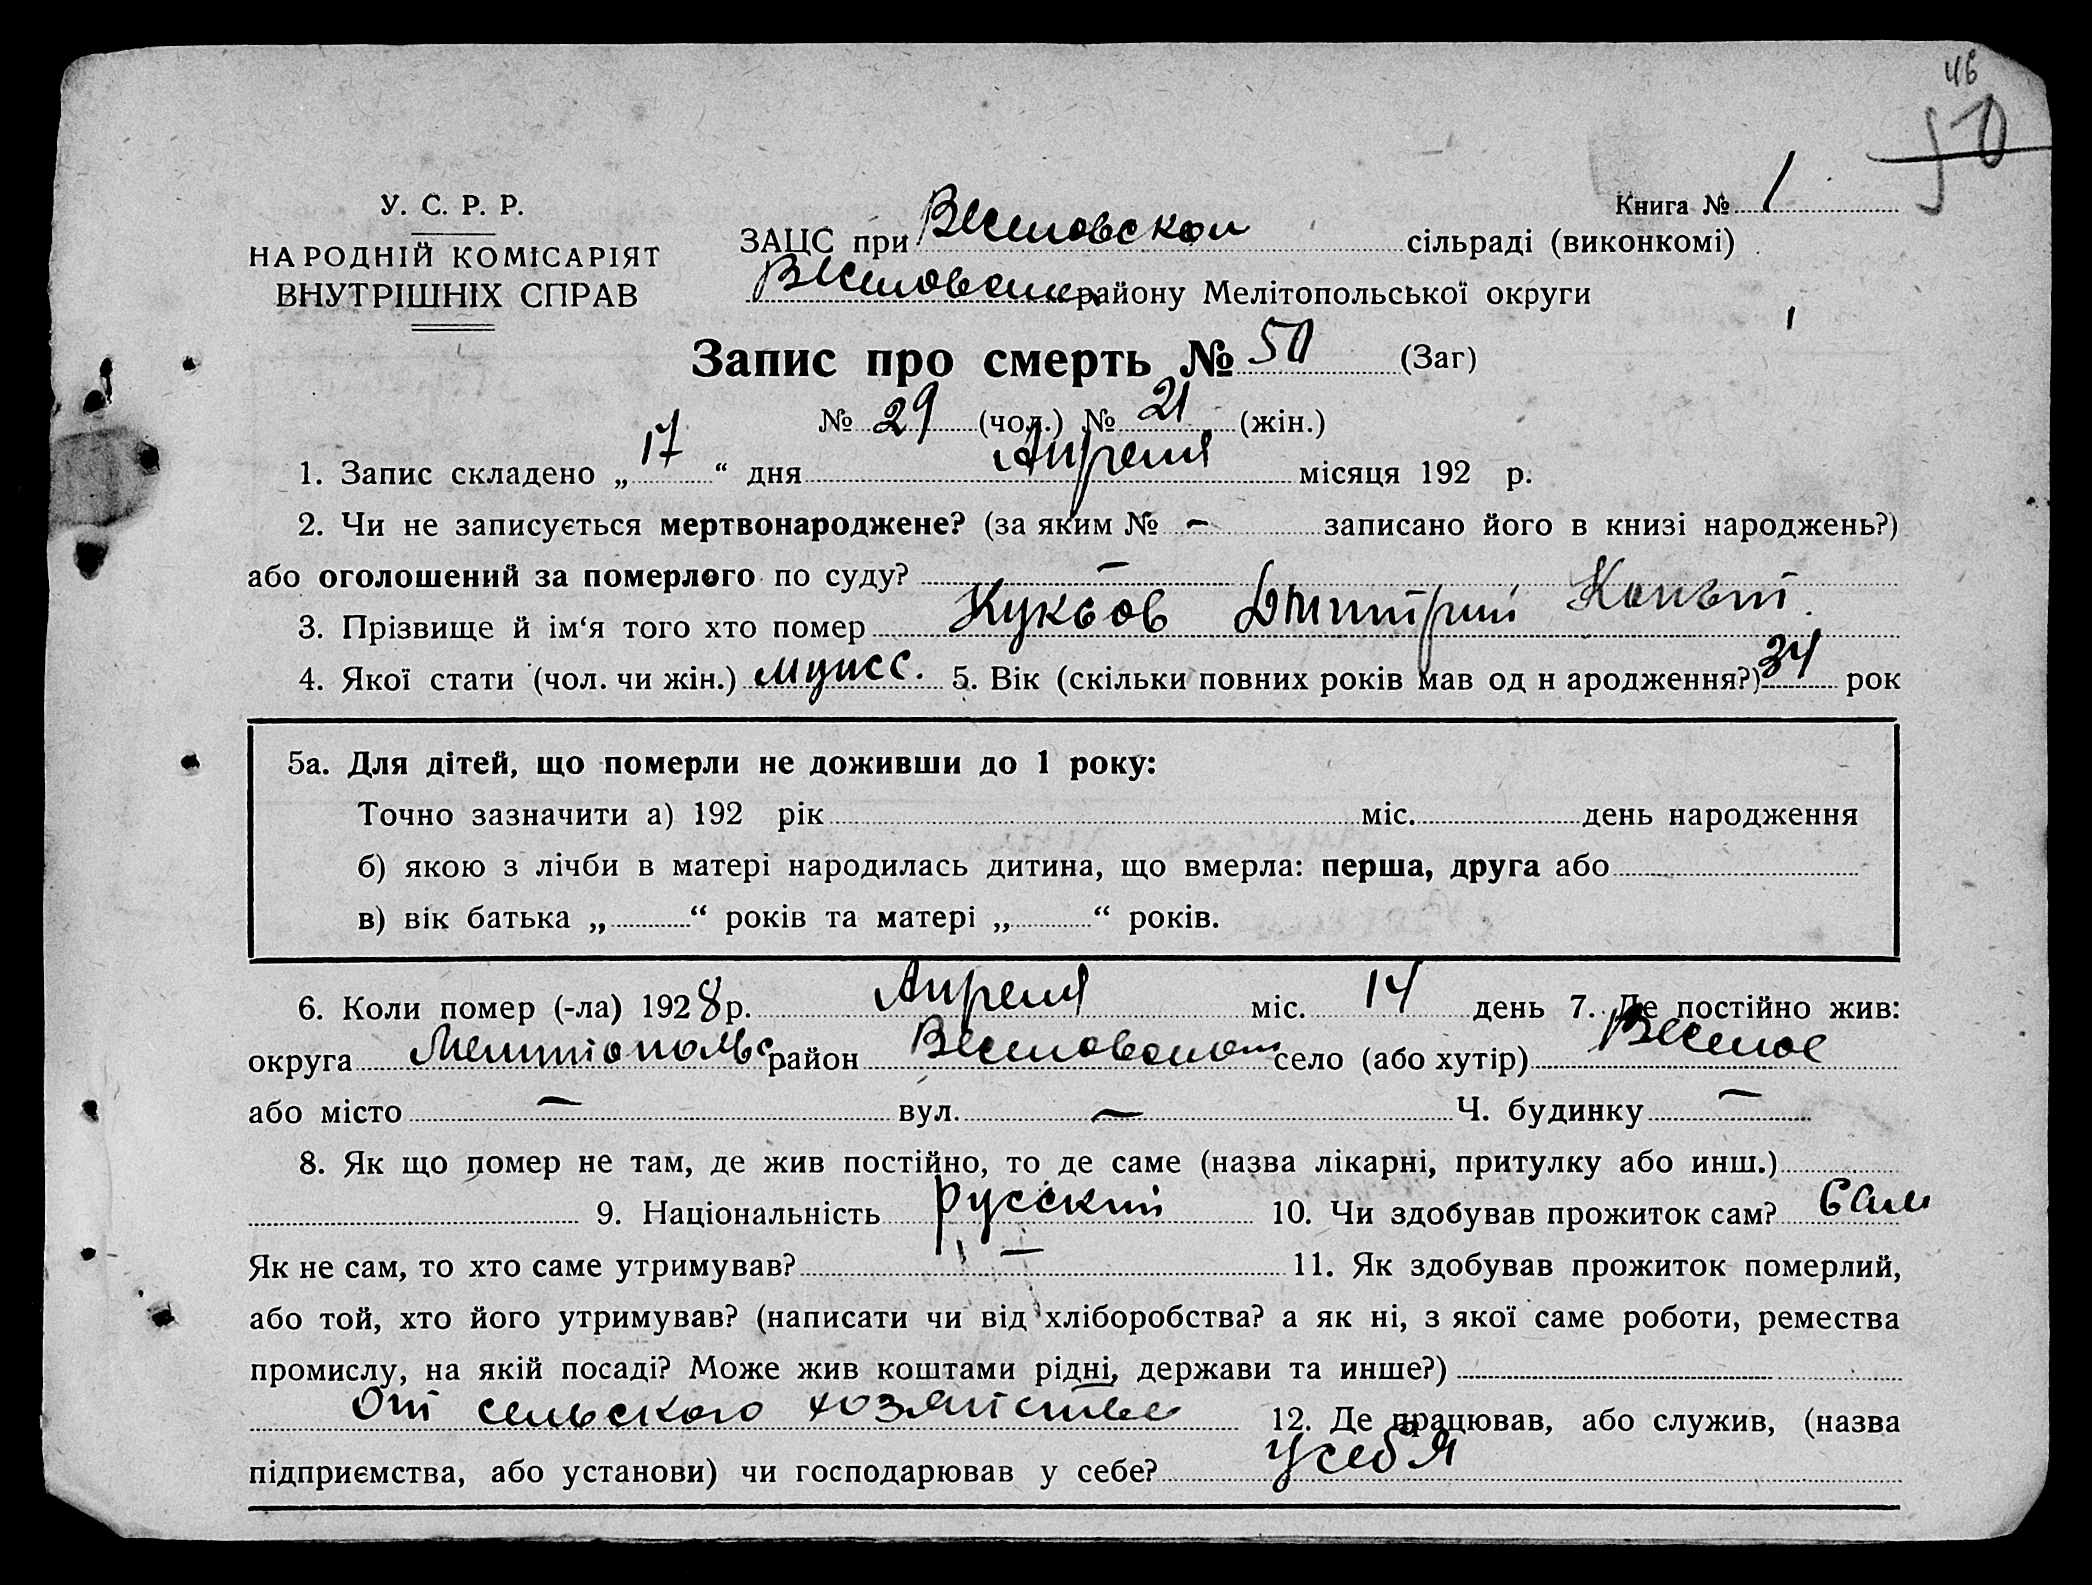 46
50
У. С. Р. Р.
НАРОДНІЙ КОМІСАРІЯТ
ВНУТРІШНІХ СПРАВ
Книга № 1
ЗАЦС при Веселовском сільраді (виконкомі)
Веселовском району Мелітопольської округи
Запис про смерть № 50 (Заг)
№ 29 (чол.) № 21 (жін.)
1. Запис складено „ 17 “ дня Апреля місяця 192 р.
2. Чи не записується мертвонароджене? (за яким № – записано його в книзі народжень?)
або оголошений за померлого по суду? –
3. Прізвище й ім‘я того хто помер Дмитрий
4. Якої стати (чол. чи жін.) мужс. 5. Вік (скільки повних років мав од н ародження?) 34 рок
5а. Для дітей, що померли не доживши до 1 року:
Точно зазначити а) 192 рік міс. день народження
б) якою з лічби в матері народилась дитина, що вмерла: перша, друга або
в) вік батька „ “ років та матері „ “ років.
6. Коли помер (-ла) 1928 р. Апреля міс. 14 день 7. Де постійно жив:
округа Мелитопольс район Веселовском село (або хутір) Веселое
або місто – вул. – Ч. будинку –
8. Як що помер не там, де жив постійно, то де саме (назва лікарні, притулку або инш.)
9. Національність русский 10. Чи здобував прожиток сам? Сам
Як не сам, то хто саме утримував? – 11. Як здобував прожиток померлий,
або той, хто його утримував? (написати чи від хліборобства? а як ні, з якої саме роботи, ремества
промислу, на якій посаді? Може жив коштами рідні, держави та инше?)
От сельского хозяйства 12. Де працював, або служив, (назва
підприємства, або установи) чи господарював у себе? у себя